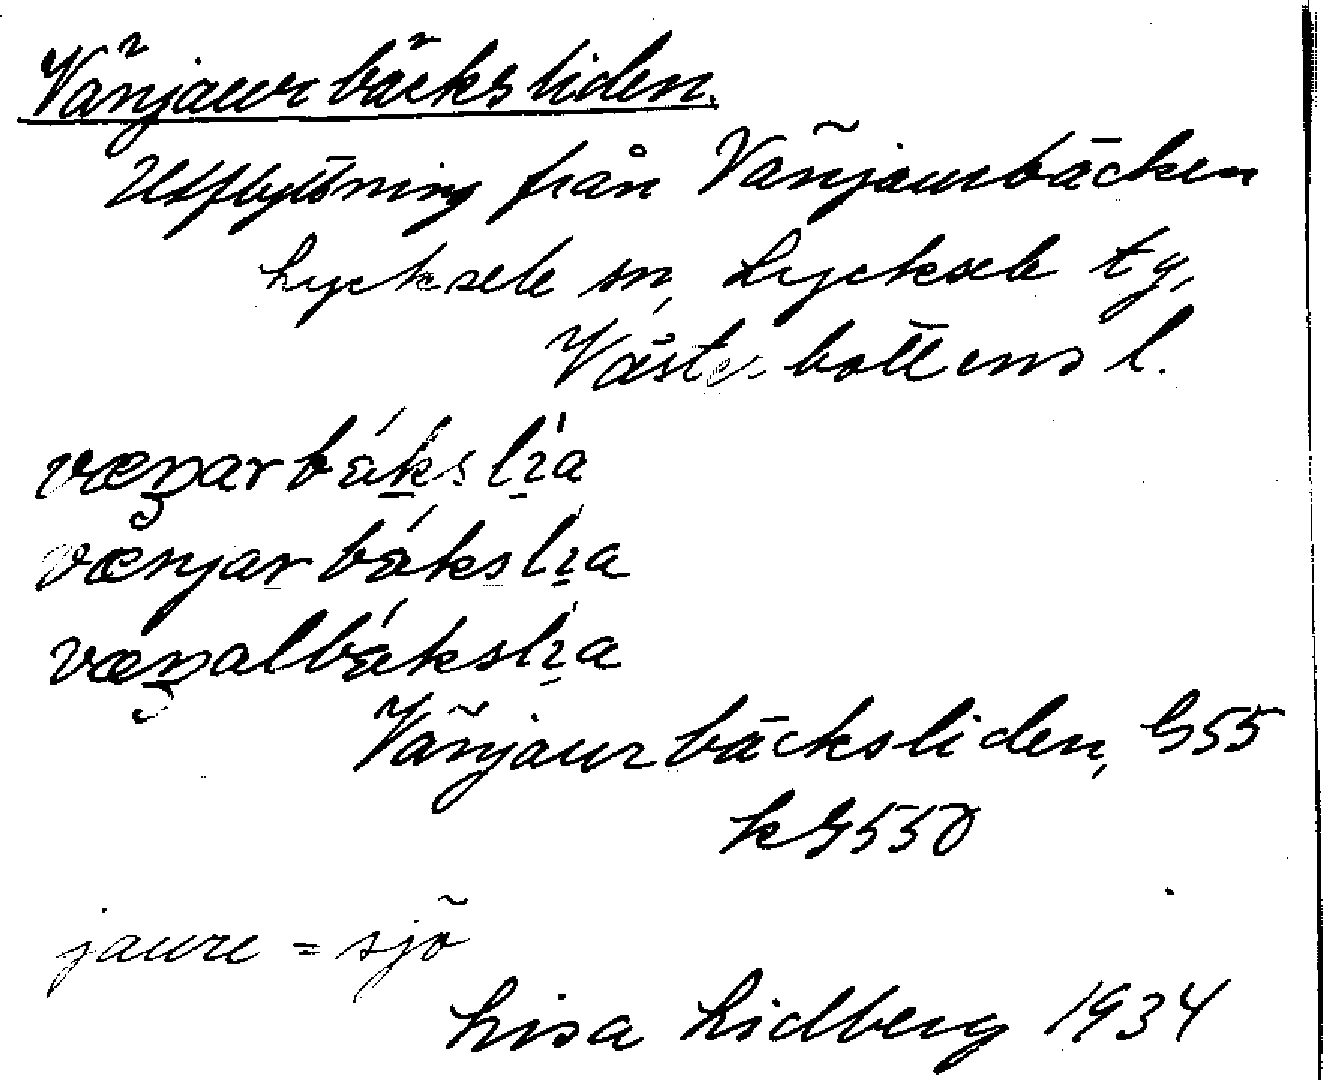 Vänjaurbäcksliden.
Utflyttning från Vänjaurbäcken
Lycksele sn, Lycksele tg,
Västerbottens l.
væꞃarbákslia
vænjarbákslia
væꞃalbákslia
Vänjaurbäcksliden, G55
kG550
jaure = sjö
Lisa Lidberg 1934